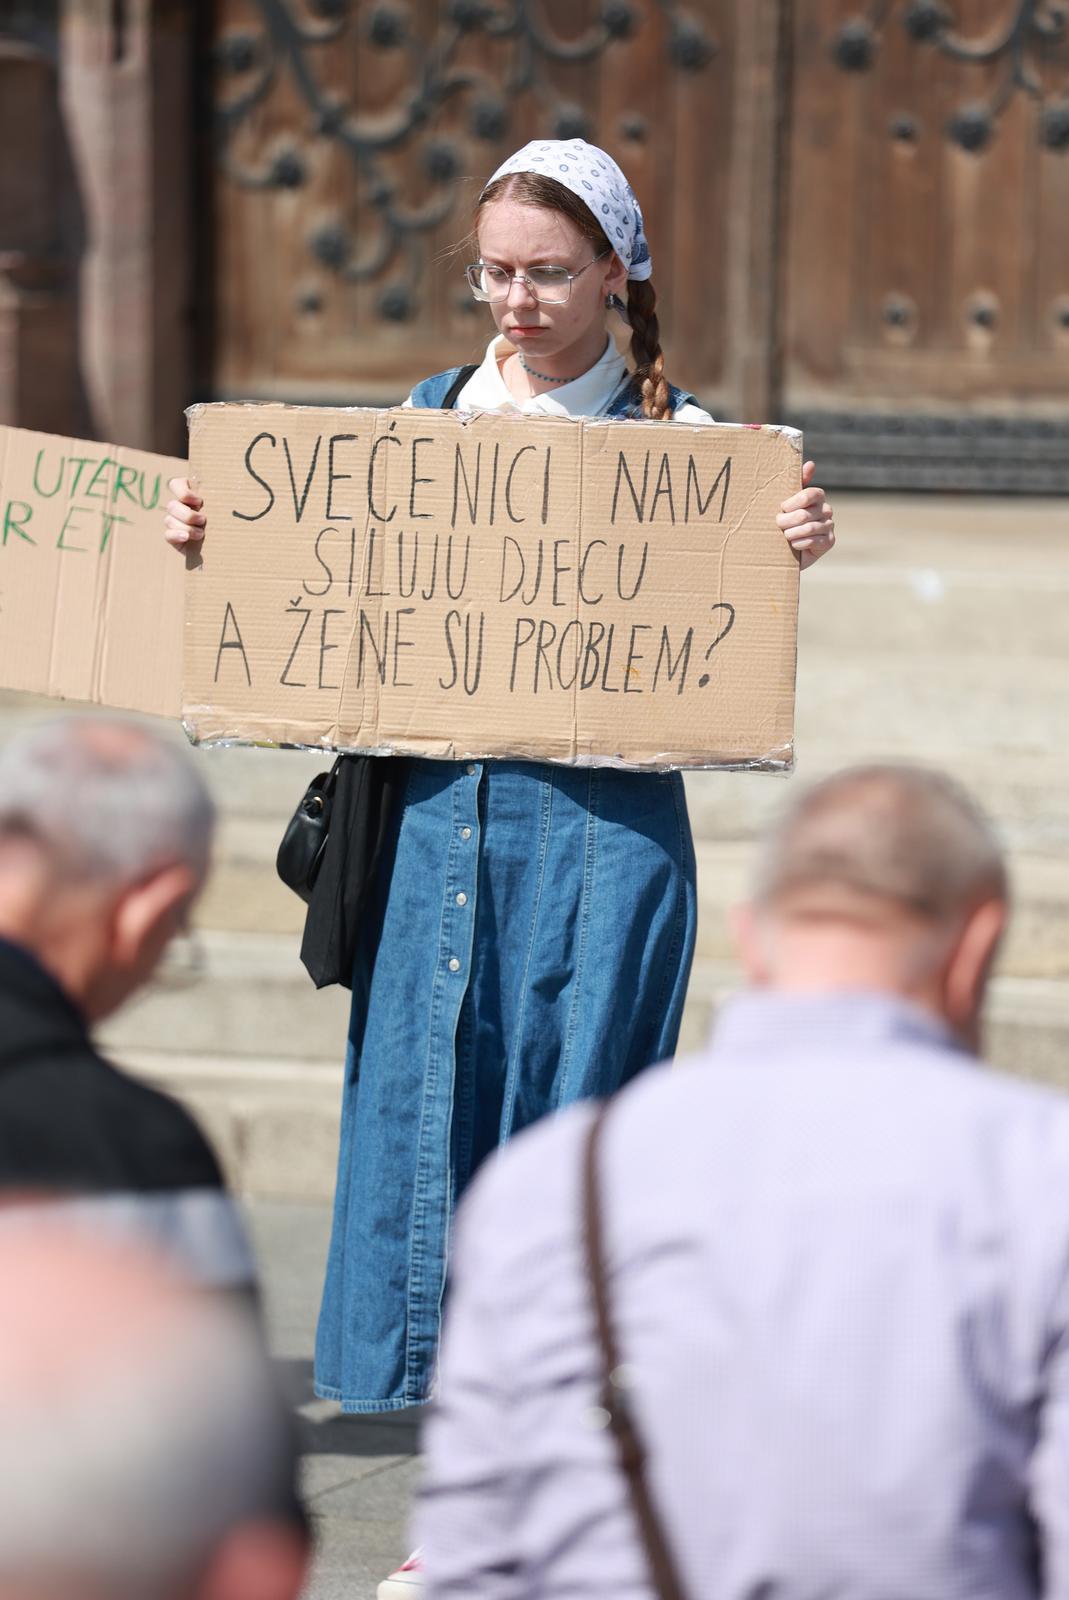 UTERUS
R ET
SVEĆENICI NAM
SILUJU DJECU
A ŽENE SU PROBLEM?